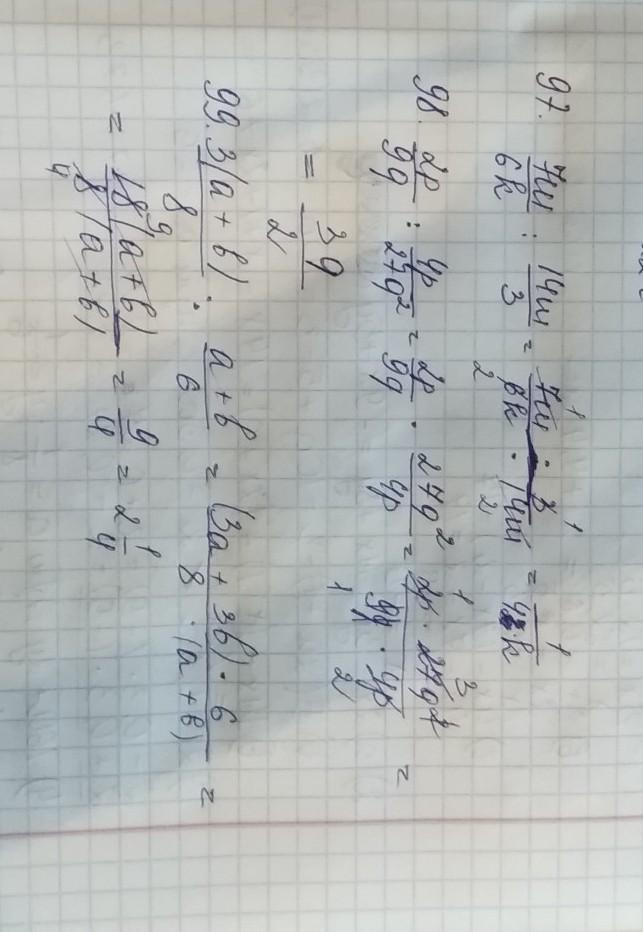 97. 7m/6k : 14m/3 = 7m · 3/6k · 14m = 1/4k
98. 2p/9q : 4p/27q² = 2p/9q · 27q²/4p = 2p · 27q²/9q · 4p =
= 3q/2
99. 3(a + b)/8 : a + b/6 = (3a + 3b) · 6/8 · (a + b) =
= 18(a + b)/8(a + b) = 9/4 = 2 1/4